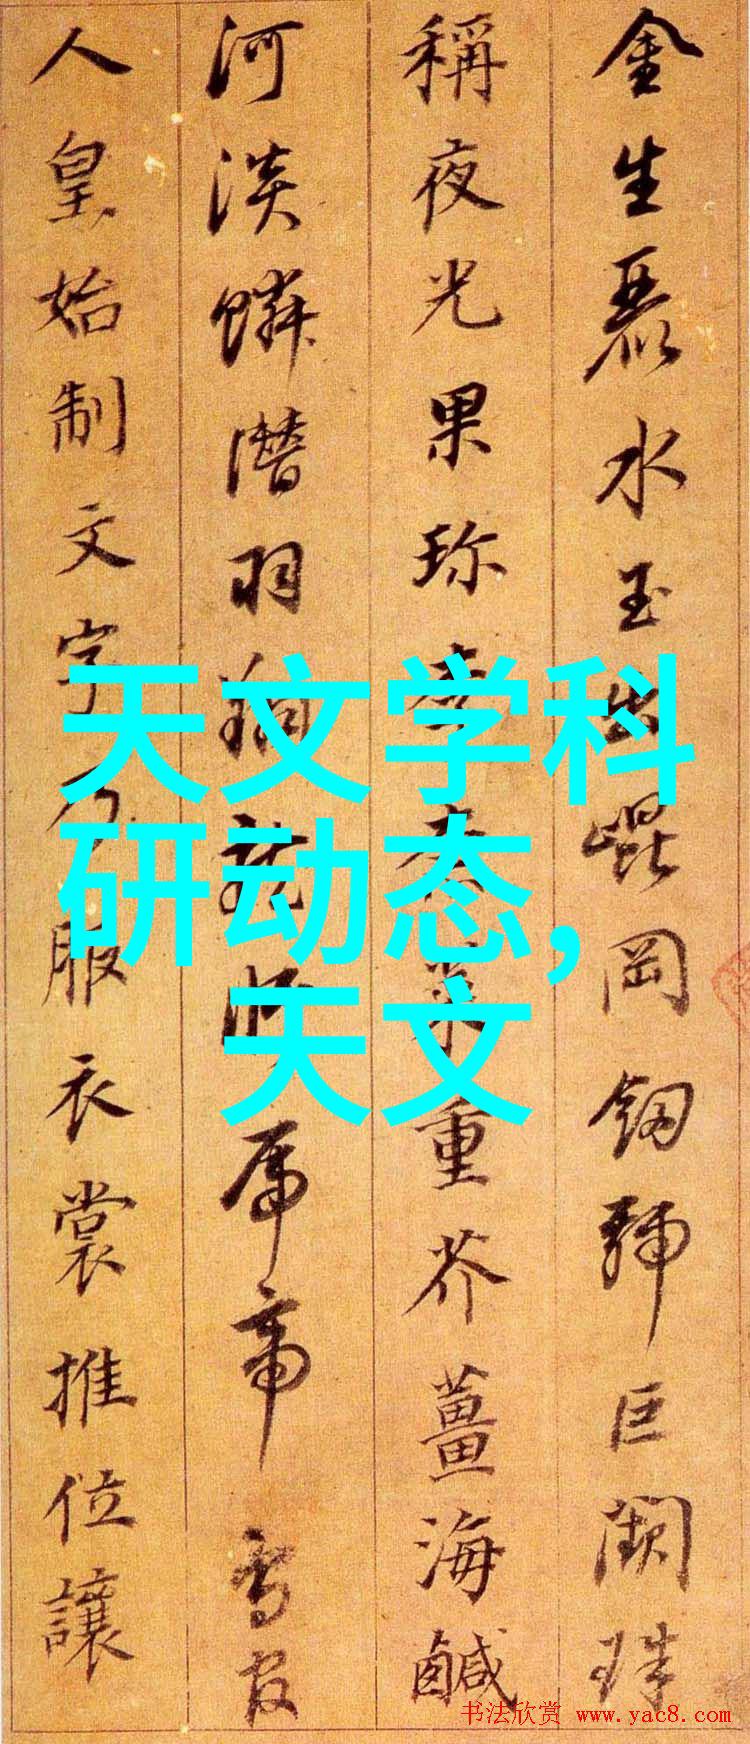 金生麗水玉出崐岡劒號巨闕珠
稱夜光果珍李柰菜重芥薑海鹹
河淡鱗潛羽翔龍師帝鳥官
人皇始制文字乃服衣裳推位讓
天文学科
研动态,
天文
书法欣赏 www.yac8.com